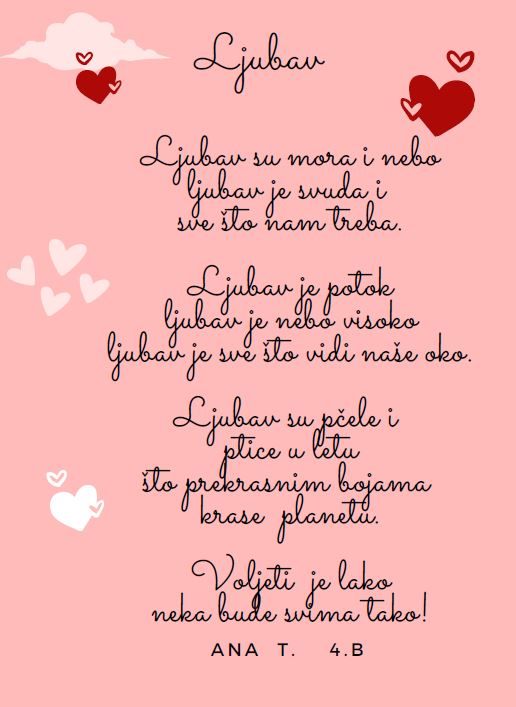 Ljubav
Ljubav su mora i nebo
ljubav je svuda i
sve što nam treba.
Ljubav je potok
ljubav je nebo visoko
ljubav je sve što vidi naše oko.
Ljubav su pčele i
ptice u letu
što prekrasnim bojama
krase planetu.
Voljeti je lako
neka bude svima tako!
ANA T. 4.B